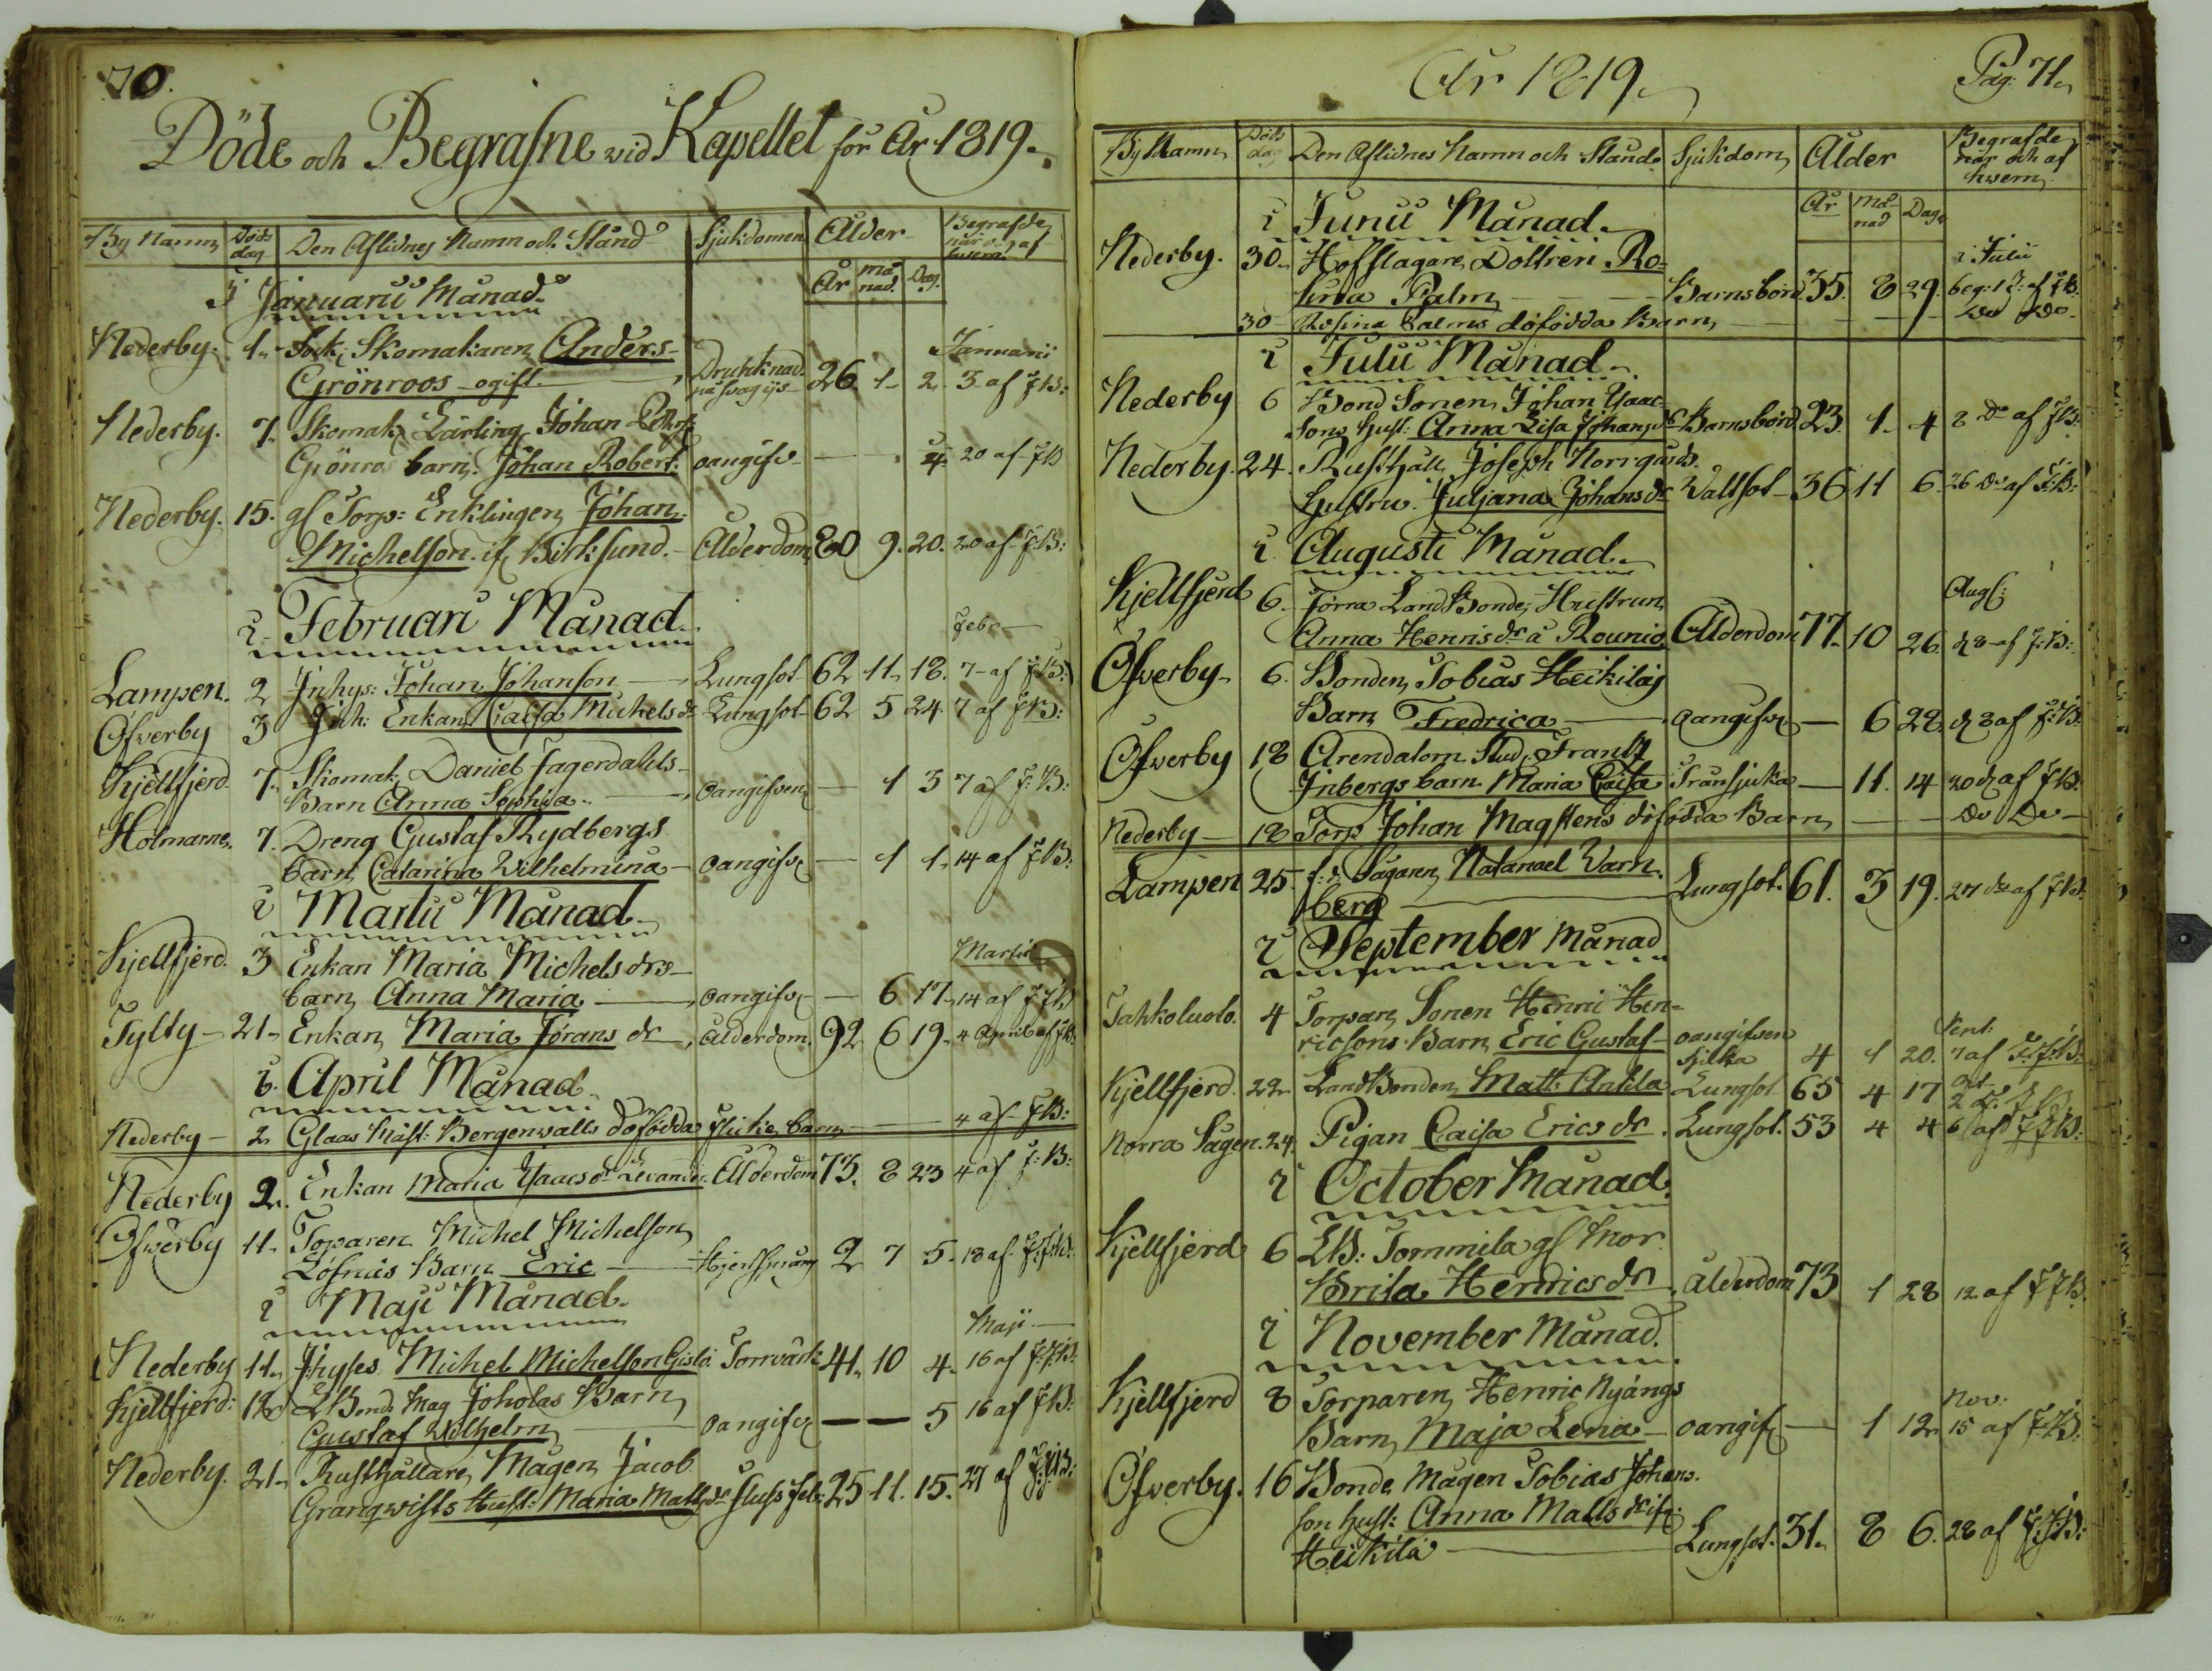 70.
Döde och Begrafne wid Kapellet för År 1819.
By Namn Döds dag Den Aflidnes Namn och Stånd Sjukdomen Ålder Begrafde när och af hwem
År må nad. Dag.
I Januarii Månad.
Nederby. 1. Sock: Skomakaren Anders Januarii
Grönroos ogift. 26 1 2. 3 af JB:
Nederby. 7. Skomak: Lärling Johan
Grönros barn. Johan Robert. oangifv. 4. 20 af JB
Nederby. 15. gl Torp: Enklingen Johan
Michelson if. Birksund. Ålderdom 80 9. 20. 20 af J:B:
i Februari Månad. Febr
Lampen. 2 Inhys: Johan Johanson Lungsot 62 11. 18. 7 af JB:
Öfverby 3 Inh: Enkan Caisa Mickels dr Lungsot 62 5 24. 7 af JB:
Kjellfjerd. 7. Skomak. Daniel Fagerdahls
Barn Anna Sophia. oangifven 1 3 7 af J:B:
Holmarne. 7. Dreng Gustaf Rydbergs
barn Catarina Wilhelmina oangifv 1 1. 14 af JB:
i Martii Månad.
Kjellfjerd. 3 Enkan Maria Michels drs Martii
barn Anna Maria oangifv 6 17. 14 af JB
Tylty 21. Enkan Maria Jörans dr ålderdom. 92 6 19. 4 April af JB.
i. April Månad.
Nederby 2. Glaas Mäst: Bergenwalls döfödda flicke barn 4 af JB:
Nederby 2. Enkan Maria Yaacs dr Levander. Ålderdom 73. 8 23 4 af J:B:
Öfwerby 11. Toparen Michel Michelson
Löfnäs Barn Eric 2 7 5. 18 af J:B:
i Maji Månad.
Maji
Nederby 11. Jhyses Michel Michelson Gislä. Torrvärk 41. 10 4. 16 af J:B:
Kjellfjerd: 12. LBond. Mag Joholas Barn
Gustaf Wilhelm oangifv 5 16 af JB:
Nederby. 21. Rusthållare Mågen Jacob
Granqwists Hust: Maria Matts dr fluss feb: 25 11. 15. 27 af J:B:
År 1819.
Pag: 71.
By Namn Döds dag Den Aflidnes Namn och Stånd. Sjukdom Ålder Begrafde när och af hwem
År må nad Dag.
i Junii Månad.
Nederby. 30. Hofslagare Dottren Ro= i Julii
sina Palm Barnsbörd 35. 8 29. beg: 1 af JB.
30 Rosina Palms döfödda Barn do do
i Julii Månad.
Nederby 6 Bond Sonen Johan Yaac
sons Hust: Anna Lisa Johans dr Barnsbörd 23. 1. 4 8 do af JB:
Nederby. 24. Rusthåll. Joseph Norrgårds.
Hustru. Juliana Johans dr Wattsot 36 11 6. 26 do af J:B:
i Augusti Månad.
Kjellfjerd 6. Förra LandBonde Hustrun Aug:
Anna Henris dr å Rounio Ålderdom 77. 10 26. d 8 af J:B:
Öfwerby 6. Bonden Tobias Heikilas
Barn Fredrica oangifv 6 28. d 8 af J:B:
Öfwerby 18 Arendatorn Stud: Frantz
Inbergs barn Maria Caisa Trånsjuka 11. 14 20 d af JB.
Nederby 18 Torp Johan Magstens döfödda Barn do do
Lampen 25. f:d Sågaren Natanael Varn
berg Lungsot. 61. 3 19. 27 do af JB.
i September Månad
Tahkoluoto. 4 Torpare Sonen Henric Hen=
ricsons Barn Eric Gustaf oangifven sjuka 4 1 20. Sept: 7 af
Kjellfjerd. 22. LandBonden Matt: Anttila Lungsot 65 4 17 Oct 2 d. J B
Norra Sågen. 24. Pigan Caisa Erics dr. Lungsot. 53 4 4 6 af J:B:
i October Månad.
Kjellfjerd 6 LB: Tommila gl Mor
Brita Henrics dr ålderdom 73 1 28 12 af JB.
i November Månad.
Kjellfjerd 8 Torparen Henric Nyängs Nov:
Barn Maja Lena oangif 1 12. 15 af J:B:
Öfverby. 16 Bonde Mågen Tobias Johans.
son Hust: Anna Matts dr if:
Heikilä Lungsot. 31. 8 6. 28 af J:B: